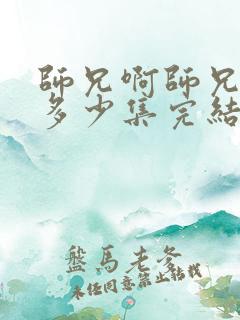 師兄啊師兄
多少集完結
盤馬老爹
未任同意禁止轉載